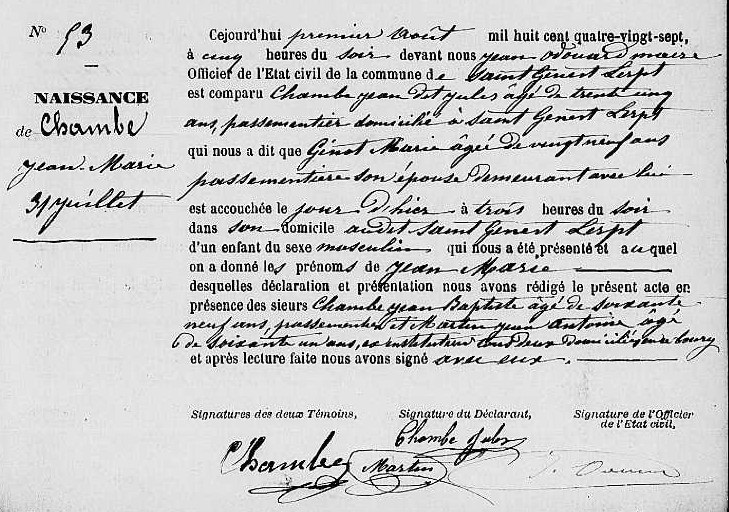 N° 53
NAISSANCE
de Chambe
Jean-Marie
31 juillet
Cejourd'hui premier Août mil huit cent quatre-vingt-sept,
à cinq heures du soir devant nous Jean Odouard maire
Officier de l'Etat civil de la commune de Saint Genest Lerpt
est comparu Chambe Jean dit Jules âgé de trente cinq
ans, passementier domicilié à Saint Genest Lerpt
qui nous a dit que Génot Marie âgée de vingt neuf ans
passementière son épouse demeurant avec lui
est accouchée le jour d'hier à trois heures du soir
dans son domicile audit Saint Genest Lerpt
d'un enfant du sexe masculin qui nous a été présenté et auquel
on a donné les prénoms de Jean Marie
desquelles déclaration et présentation nous avons rédigé le présent acte en
présence des sieurs Chambe Jean Baptiste âgé de soixante
neuf ans, passementier et Martin Jean Antoine âgé
de soixante un ans, ex instituteur tous deux domiciliés en ce bourg
et après lecture faite nous avons signé avec eux.
Signatures des deux Témoins, Signature du Déclarant, Signature de l'Officier
de l'Etat civil,
Chambe Jules
Chambe Martin